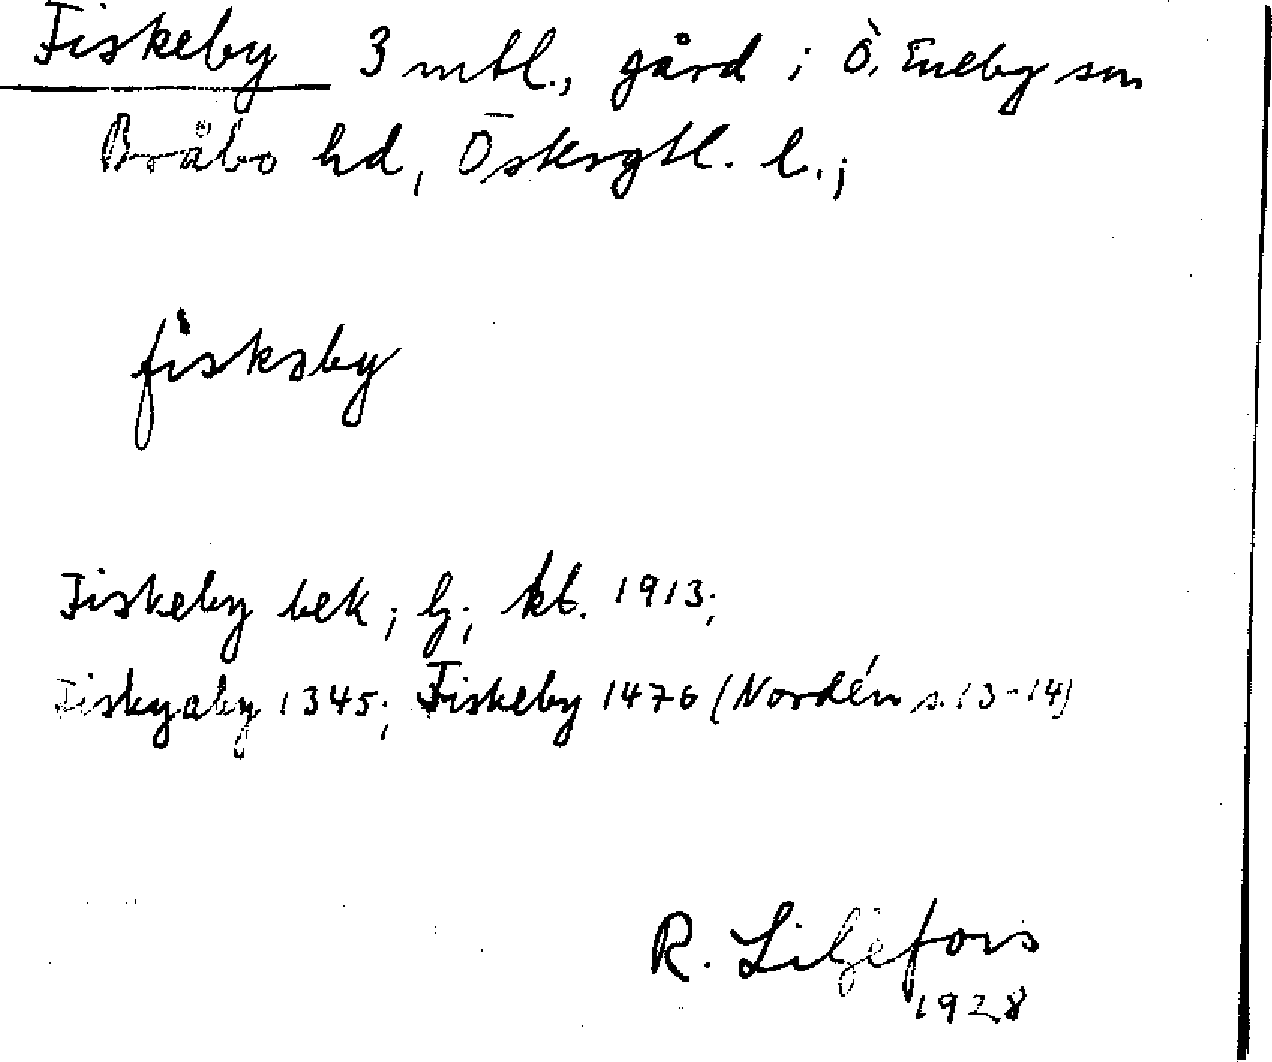 Fiskeby 3 mtl., gård i Ö. Eneby sn
Bråbo hd, Östergtl. l.;
fiskəby
Fiskeby bek; kt. 1913;
Fiskyaby 1345; Fiskeby 1476 (Nordén s. 13-14)
R. Liljefors
1928